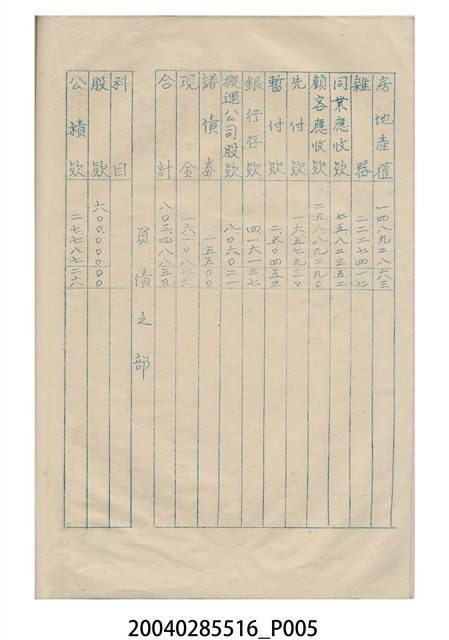 房地產權 一四八九二八六三
雜器 二二二七四一七
同業應收欵 七五八二三五二
顧客應收欵 二五八八二九〇
先付欵 一六五七九三〇
暫付欵 二五〇四五
銀行存欵 四一六一三七
搬運公司股欵 八〇六〇二一
諸債券 一五五〇〇
現金
合計 八〇三四八八三九
負債之部
科目
股欵 六〇〇〇〇〇〇〇
公積欵 二七七八七二六
20040285516_P005